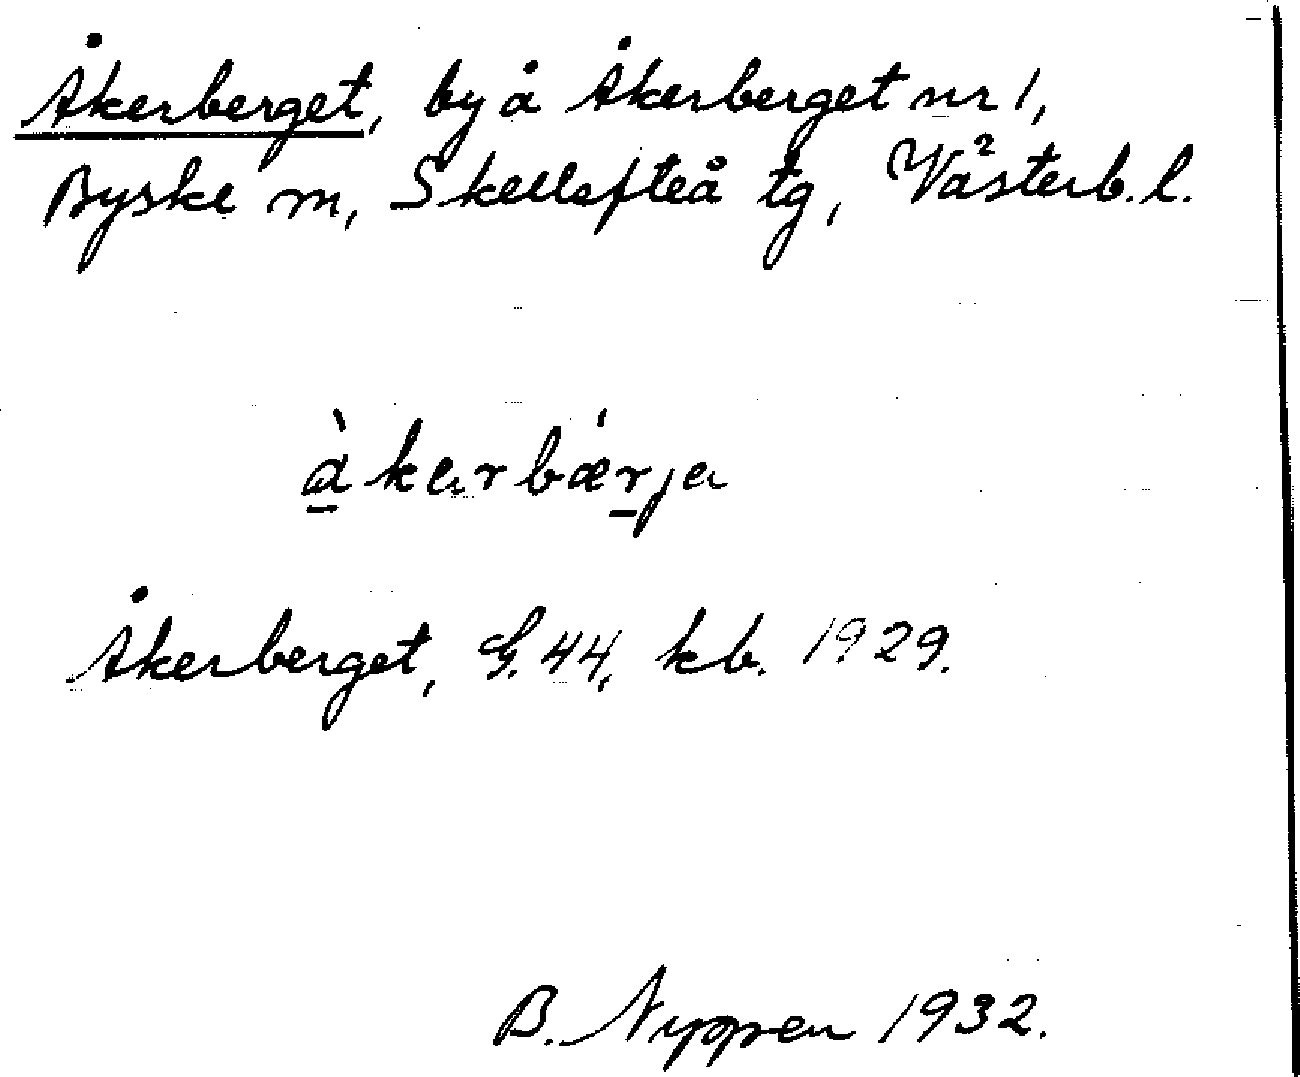 Åkerberget, by å Åkerberget nr 1,
Byske sn, Skellefteå tg, Västerb. l.
àkerbǽrja
Åkerberget, G. 44, kb. 1929.
B. Nyppen 1932.